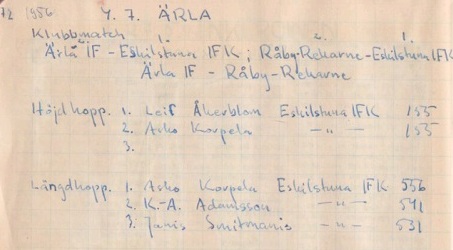 72 1956 4.7. ÄRLA
Klubbmatch 1. 2. 1.
Ärla IF - Eskilstuna IFK ; Råby-Rekarne - Eskilstuna IFK
Ärla IF - Råby-Rekarne
Höjdhopp. 1. Leif Åkerblom Eskilstuna IFK 155
2. Asko Korpela -"- 155
3.
Längdhopp. 1. Asko Korpela Eskilstuna IFK 556
2. K.-A. Adamsson -"- 541
3. Janis Smitmanis -"- 531